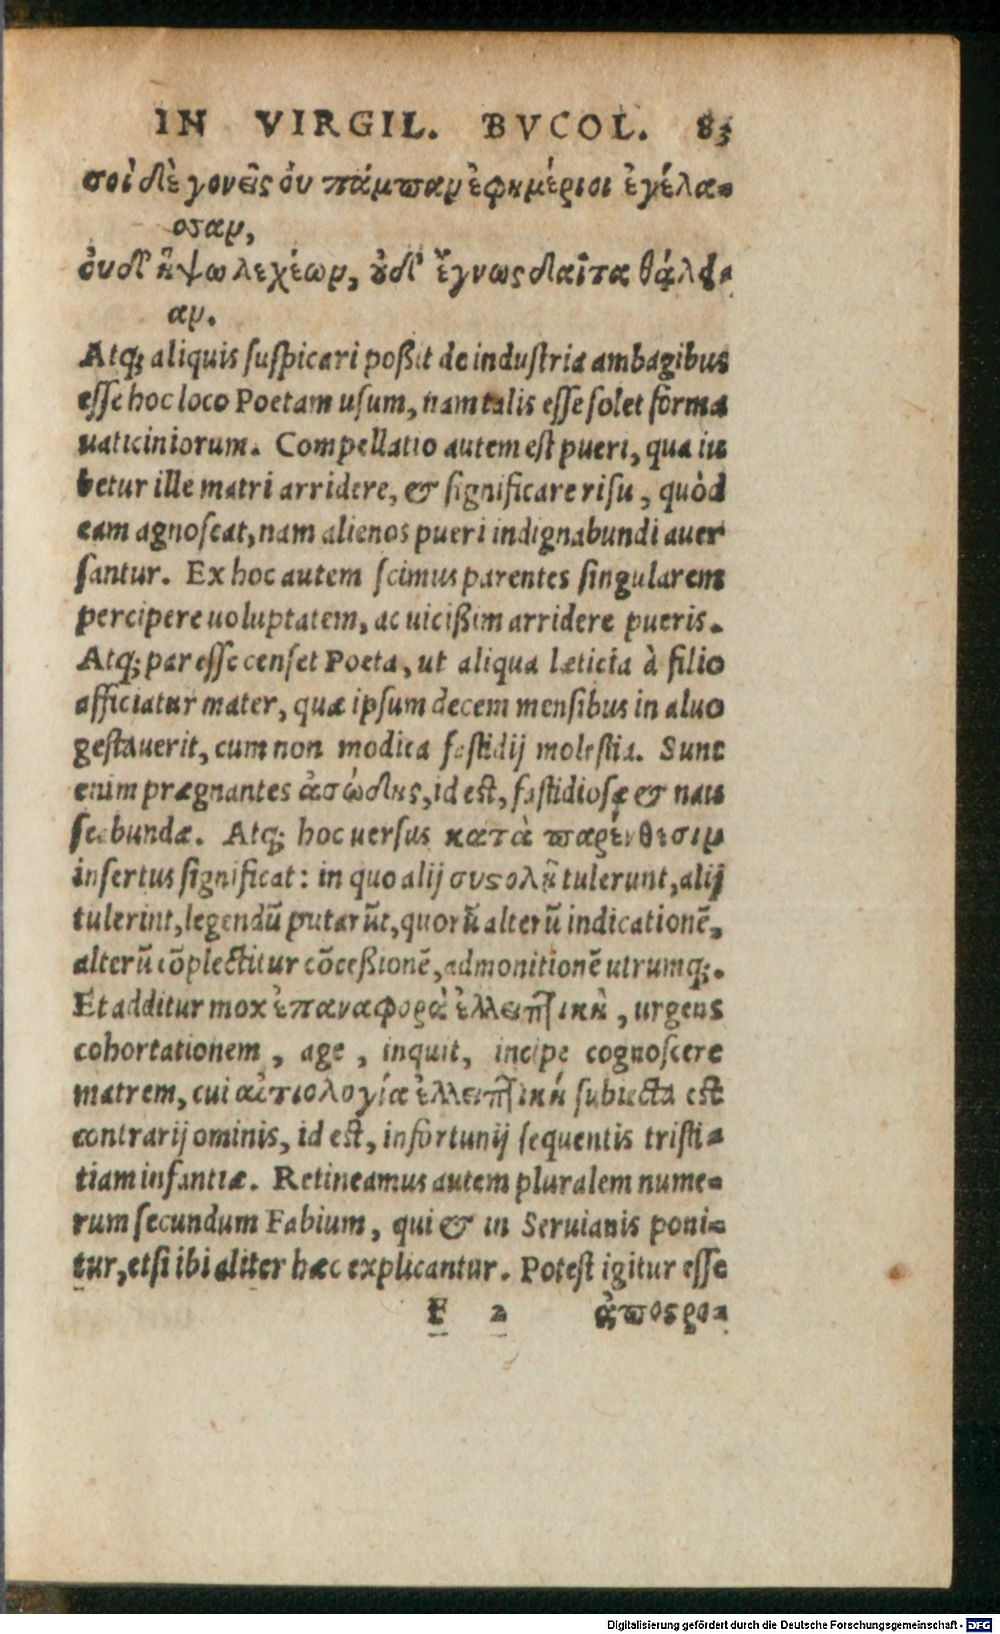 IN VIRGIL. BVCOL. 83
σοὶ δὲ γονεῖς οὐ πάμπαν ἐφημέριοι ἐγέλα-
σαν,
οὐδ' ἥψω λεχέων, οὐδ' ἔγνως δαῖτα θάλει-
αν.
Atq; aliquis suspicari poßit de industria ambagibus
esse hoc loco Poetam usum, nam talis esse solet forma
uaticiniorum. Compellatio autem est pueri, qua iu
betur ille matri arridere, & significare risu, quòd
eam agnoscat, nam alienos pueri indignabundi auer
santur. Ex hoc autem scimus parentes singularem
percipere uoluptatem, ac uicißim arridere pueris.
Atq; par esse censet Poeta, ut aliqua læticia à filio
afficiatur mater, quæ ipsum decem mensibus in aluo
gestauerit, cum non modica fastidij molestia. Sunt
enim prægnantes ἀσώδεις, id est, fastidiosæ & nau
seabundæ. Atq; hoc uersus κατὰ παρένθεσιν
insertus significat: in quo alij συστολὴ tulerunt, alij
tulerint, legendū putarūt, quorū alterū indicationē,
alterū cōplectitur cōceßionē, admonitionē utrumq;.
Et additur mox ἐπαναφορὰ ἐλλειπτικὴ, urgens
cohortationem, age, inquit, incipe cognoscere
matrem, cui αἰτιολογία ἐλλειπτικὴ subiecta est
contrarij ominis, id est, infortunij sequentis tristi-
tiam infantiæ. Retineamus autem pluralem nume-
rum secundum Fabium, qui & in Seruianis poni-
tur, etsi ibi aliter hæc explicantur. Potest igitur esse
F 2 ἀποστρο-
Digitalisierung gefördert durch die Deutsche Forschungsgemeinschaft - DFG